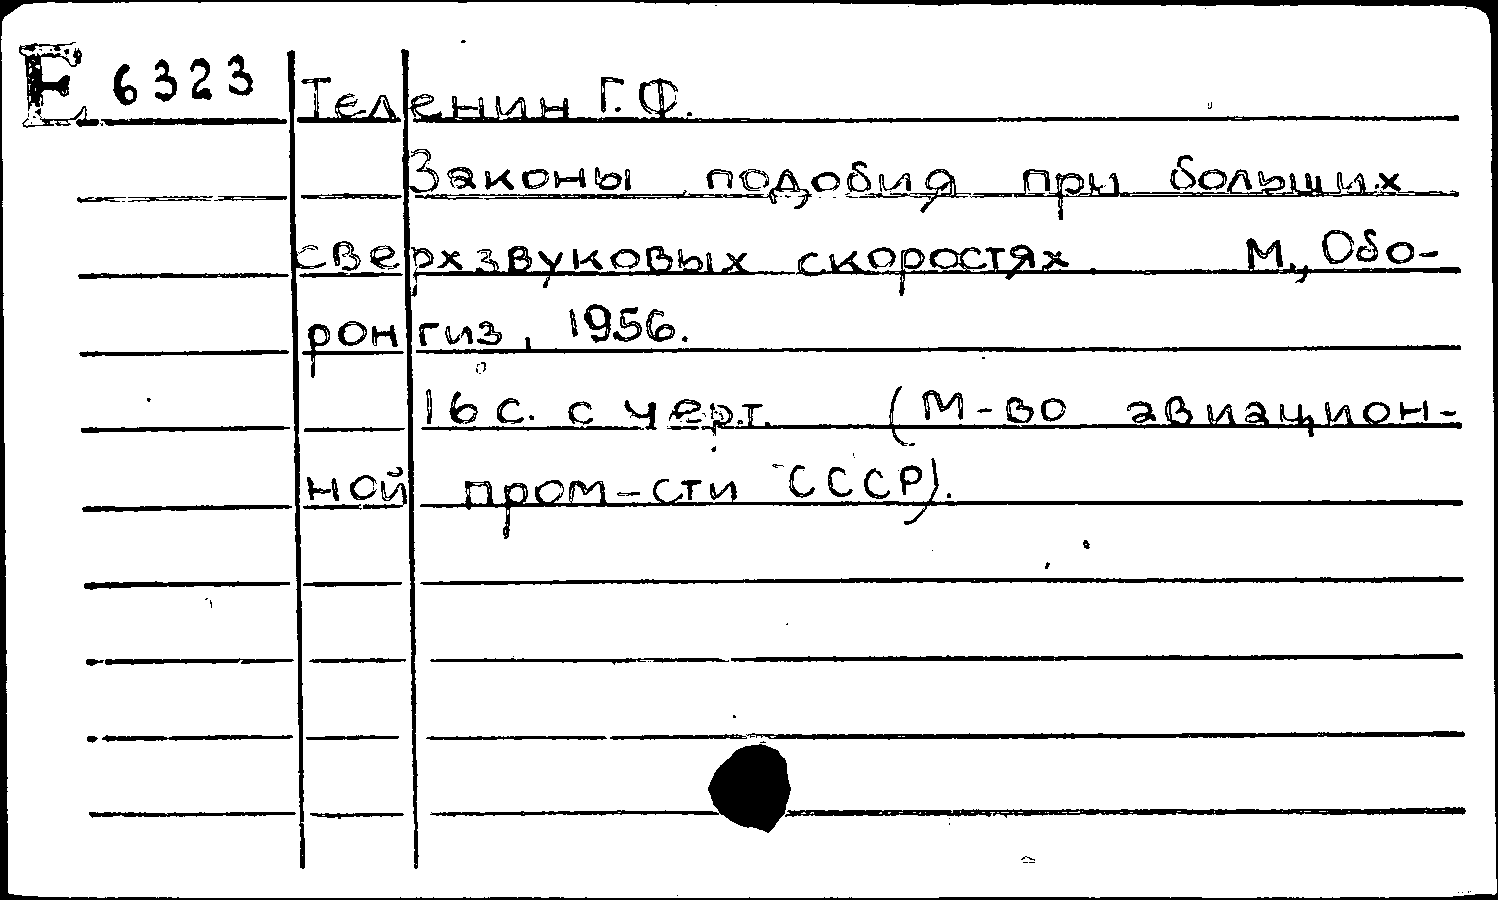 E 6323 Теленин Г.Ф.
Законы подобия при больших
сверхзвуковых скоростях. М., Обо-
ронгиз, 1956.
16 с. с черт. (М-во авиацион-
ной пром-сти СССР).